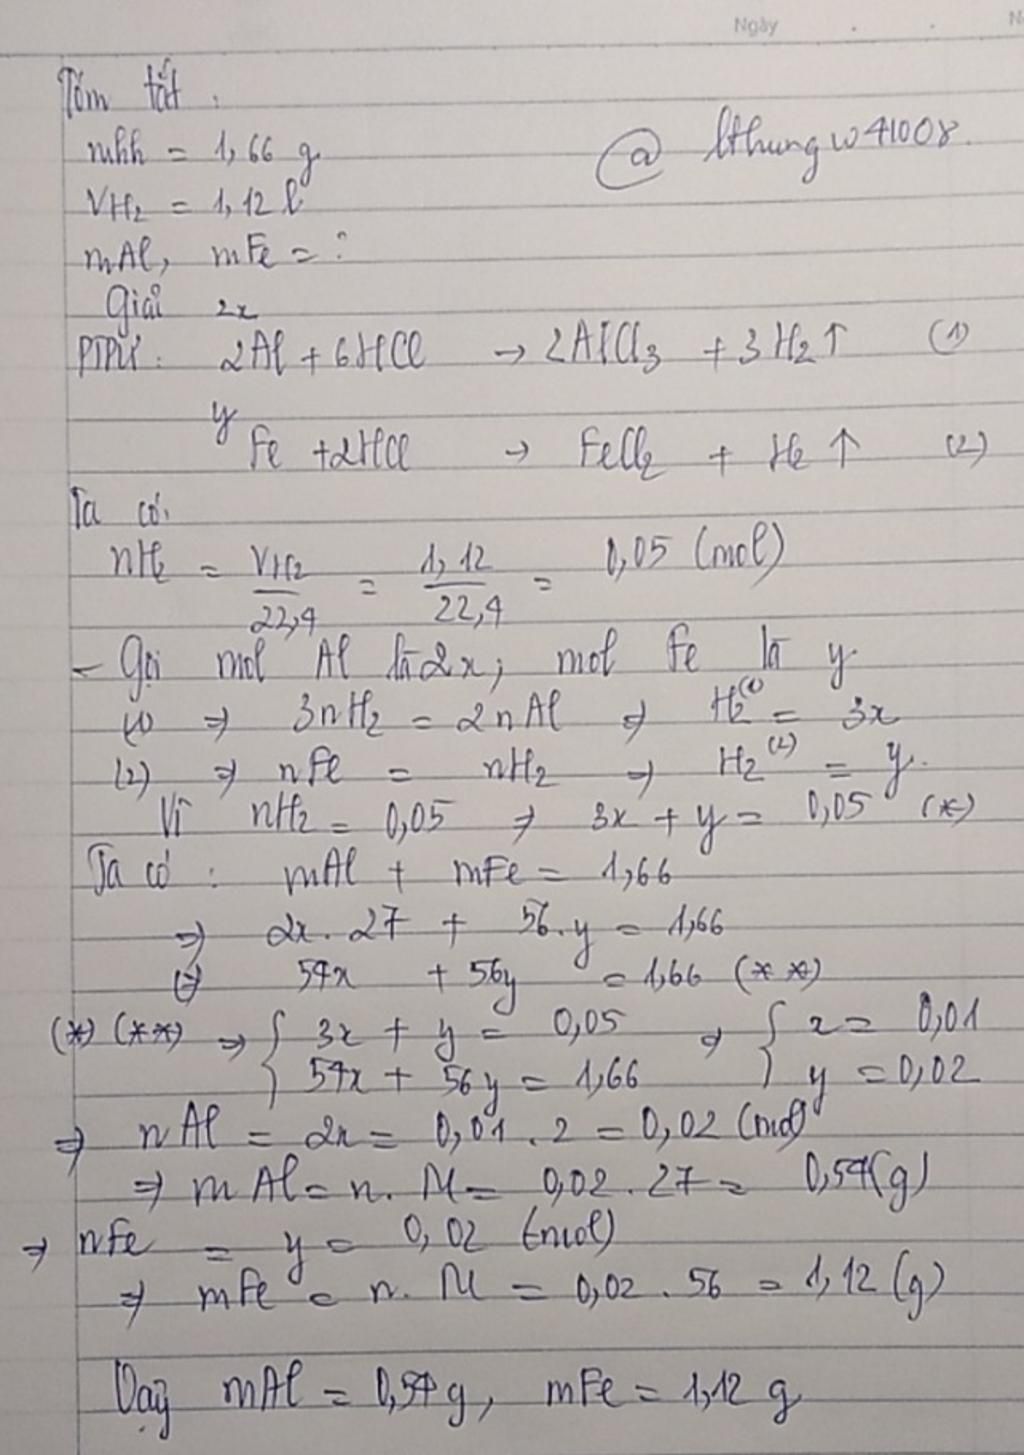 Ngày
Tóm tắt:
mhh = 1,66 g
@ lthungw41008.
VH2 = 1,12 l
mAl, mFe = ?
Giải 2x
PTPƯ: 2Al + 6HCl → 2AlCl3 + 3H2↑ (1)
y
Fe + 2HCl → FeCl2 + H2↑ (2)
Ta có:
nH2 = VH2/22,4 = 1,12/22,4 = 0,05 (mol)
- Gọi mol Al là 2x; mol Fe là y
(1) ⇒ 3nH2 = 2nAl ⇒ H2(1) = 3x
(2) ⇒ nFe = nH2 ⇒ H2(2) = y.
Vì nH2 = 0,05 ⇒ 3x + y = 0,05 (*)
Ta có: mAl + mFe = 1,66
⇒ 2x. 27 + 56.y = 1,66
⇔ 54x + 56y = 1,66 (**)
(*) (**) ⇒ { 3x + y = 0,05 ⇒ { x = 0,01
54x + 56y = 1,66 y = 0,02
⇒ nAl = 2x = 0,01 . 2 = 0,02 (mol)
⇒ mAl = n. M = 0,02 . 27 = 0,54(g)
⇒ nFe = y = 0,02 (mol)
⇒ mFe = n. M = 0,02 . 56 = 1,12 (g)
Vậy mAl = 0,54g, mFe = 1,12 g